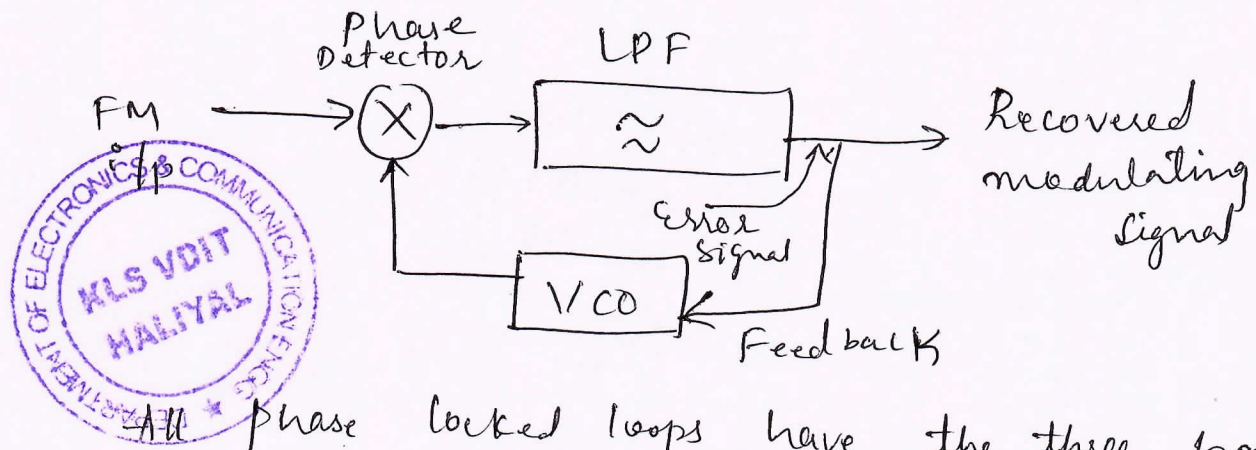 Phase
Detector
LPF
FM
i/p
X
≈
Recovered
modulating
signal
Error
Signal
VCO
Feedback
DEPARTMENT OF ELECTRONICS & COMMUNICATION ENGG ★
KLS VDIT
HALIYAL
All phase locked loops have the three